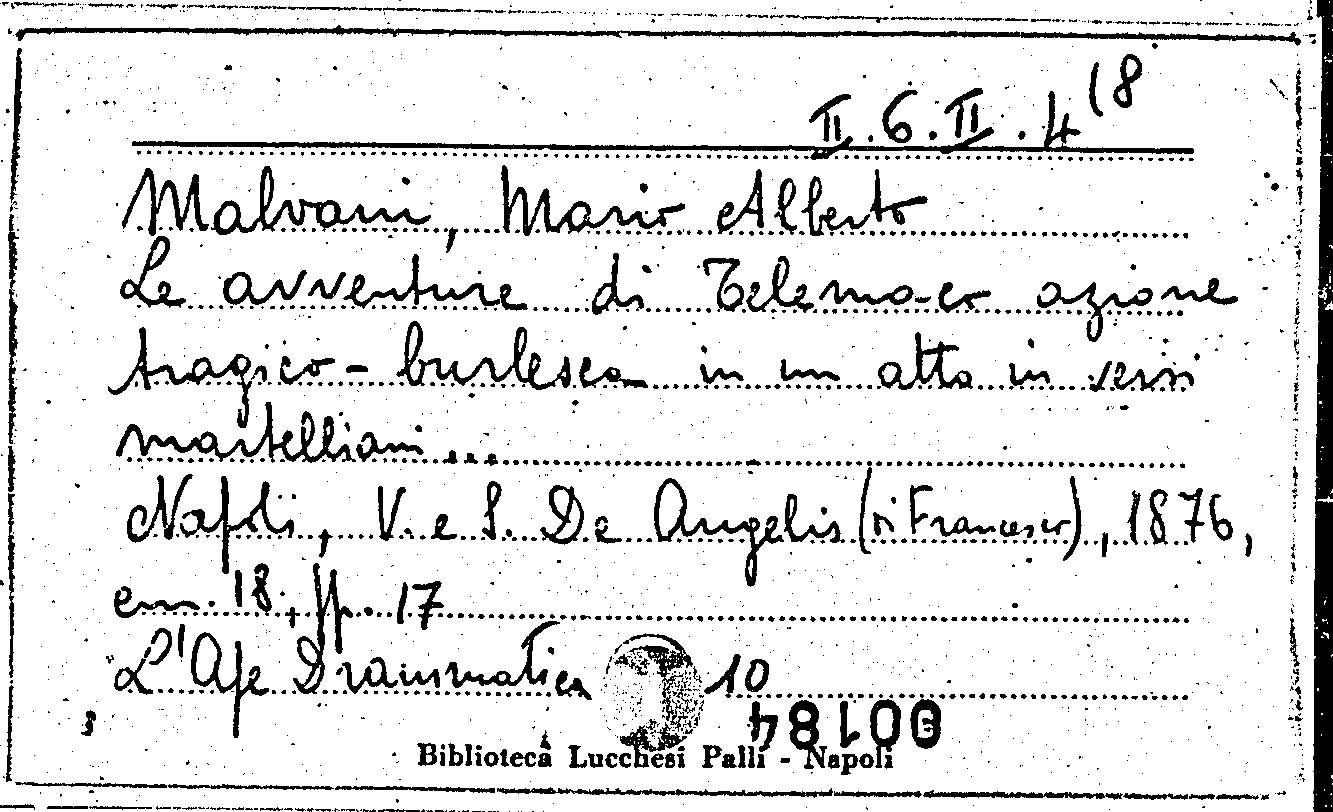 II.6.II.4¹⁸
Malvani, Mario Alberto
Le avventure di Telemaco azione
tragico-burlesca in un atto in versi
martelliani...
Napoli, V. e S. De Angelis (di Francesco), 1876,
cm. 18, pp. 17
L'Ape Drammatica 10
00184
Biblioteca Lucchesi Palli - Napoli